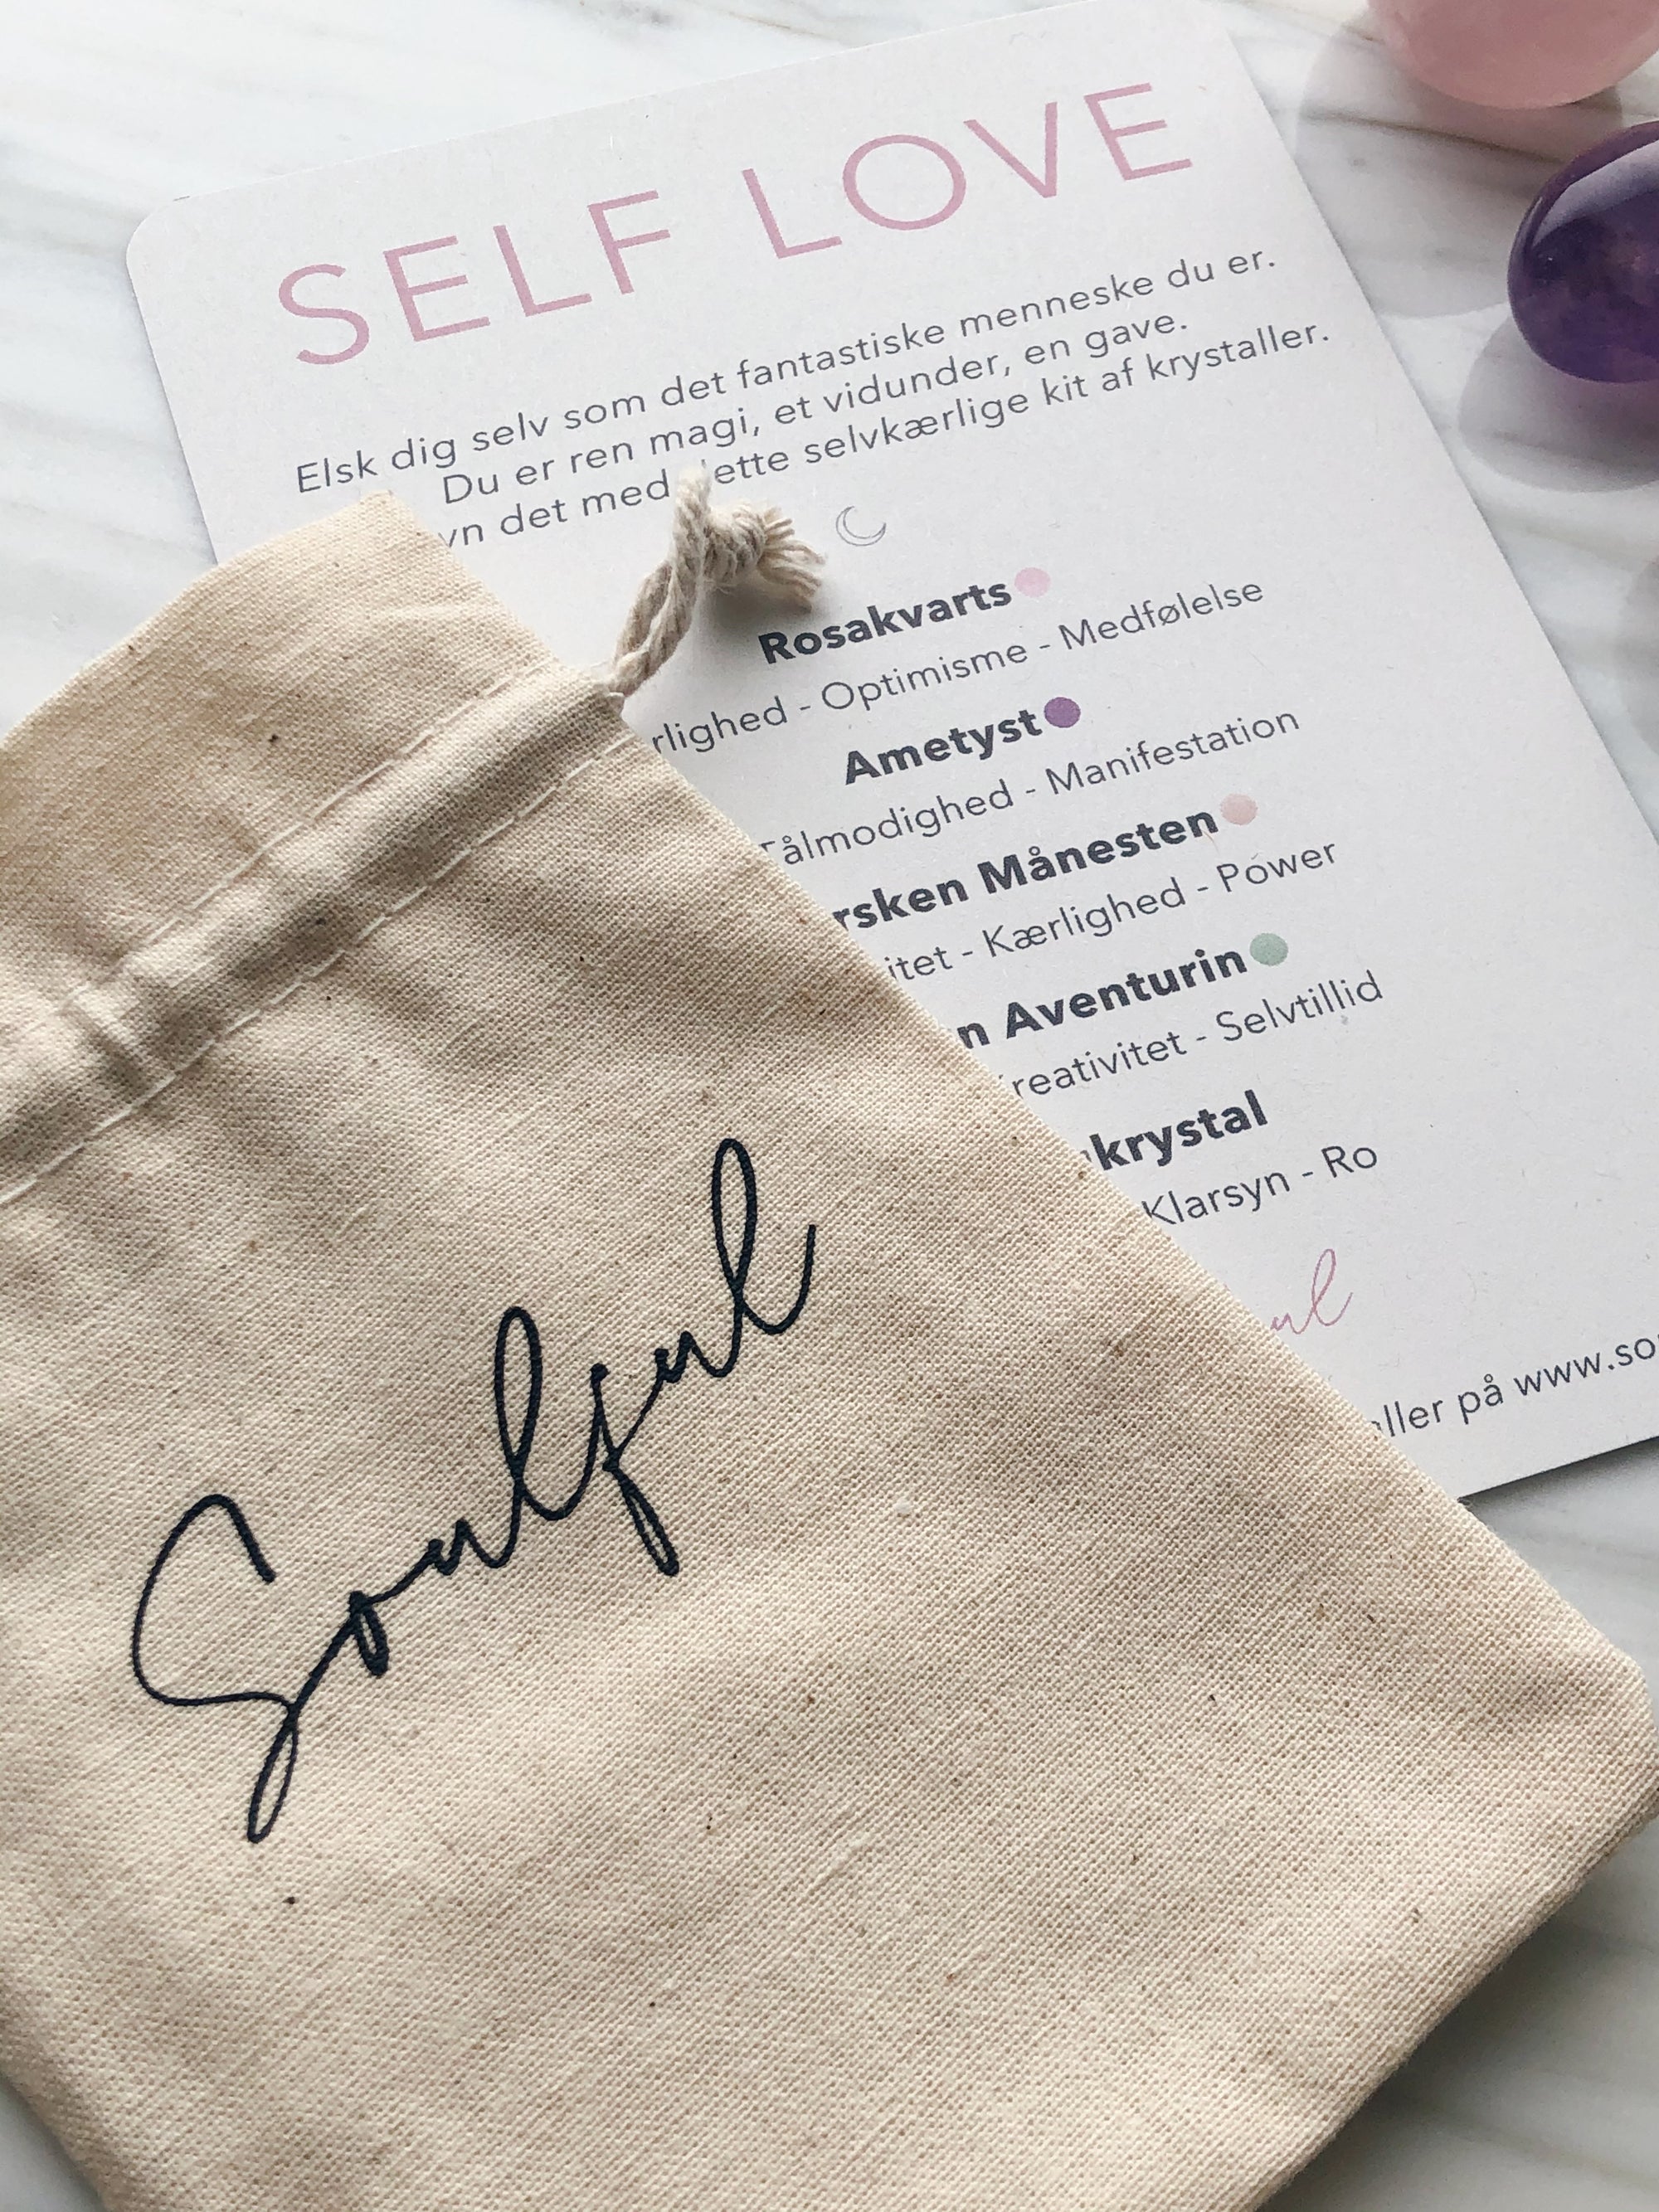 SELF LOVE
Elsk dig selv som det fantastiske menneske du er.
Du er ren magi, et vidunder, en gave.
det med selvkærlige kit af krystaller.
Rosakvarts
- Optimisme - Medfølelse
Ametyst
Tålmodighed - Manifestation
Månesten
- Kærlighed - Power
Aventurin
- Selvtillid
Klarsyn - Ro
på
Soulful